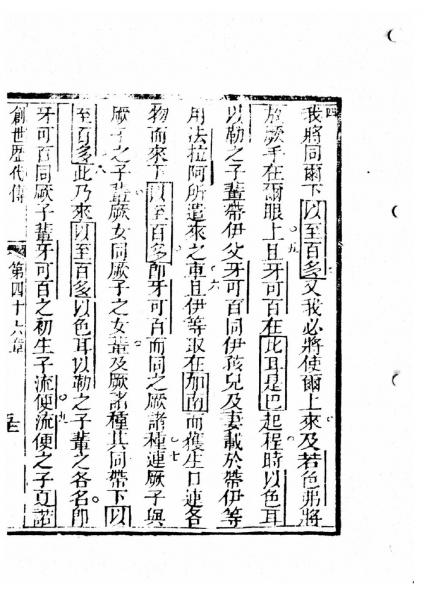 四
我將同爾下以至百多又我必將使爾上來及若色弗將
放厥手在爾眼上且牙可百在此耳是巴起程時以色耳
以勒之子輩帶伊父牙可百同伊孩兒及妻載於帶伊等
用法拉阿所遣來之車且伊等取在加南而獲生口連各
物而來下以至百多即牙可百而同之厥諸種連厥子與
厥子之子輩厥女同厥子之女輩及厥諸種其同帶下以
至百多此乃來以至百多以色耳以勒之子輩之各名即
牙可百同厥子輩牙可百之初生子流便流便之子
創世歷代傳
第四十六章
五
六
七
九